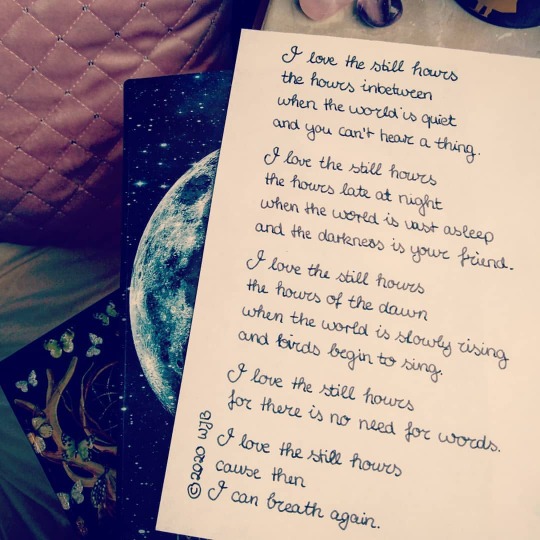 I love the still hours
the hours inbetween
when the world is quiet
and you can't hear a thing.
I love the still hours
the hours late at night
when the world is vast asleep
and the darkness is your friend.
I love the still hours
the hours of the dawn
when the world is slowly rising
and birds begin to sing.
I love the still hours
for there is no need for words.
I love the still hours
cause then
I can breath again.
©2020 WJB